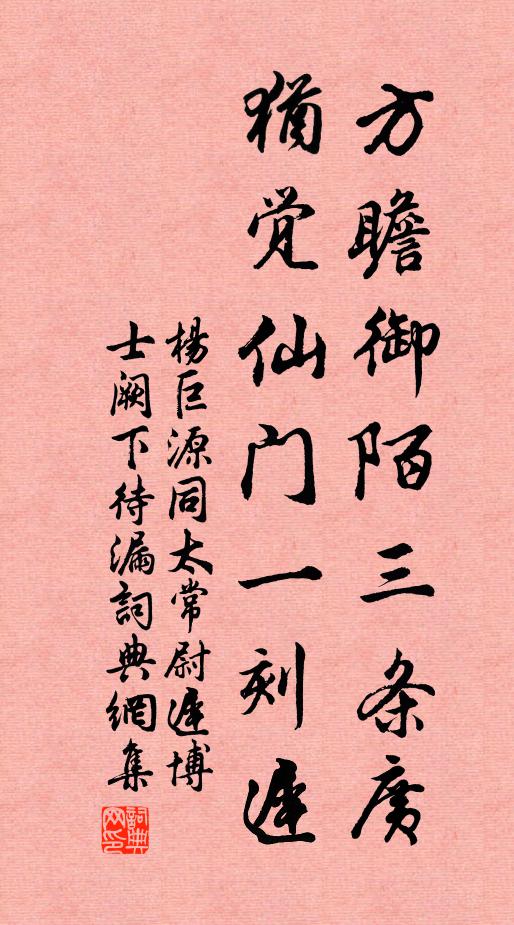 方瞻御陌三条广
犹觉仙门一刻迟
楊巨源同太常尉遲博
士阙下待漏詞典網集
詞典网印